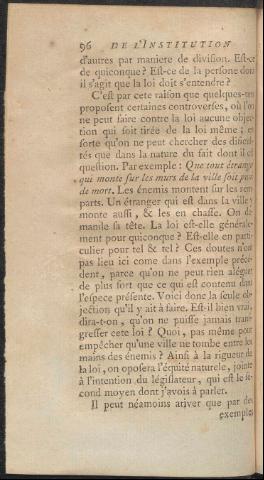 96 DE L'INSTITUTION
d'autres par maniere de division. Est-ce
de quiconque? Est-ce de la persone dont
il s'agit que la loi doit s'entendre?
C'est par cete raison que quelques-
proposent certaines controverses, où l'on
ne peut faire contre la loi aucune objec-
tion qui soit tirée de la loi même; en
sorte qu'on ne peut chercher des dificul-
tés que dans la nature du fait dont il est
question. Par exemple: Que tout étranger
qui monte sur les murs de la ville soit puni
de mort. Les énemis montent sur les rem-
parts. Un étranger qui est dans la ville y
monte aussi, & les en chasse. On de-
mande sa tête. La loi est-elle générale-
ment pour quiconque? Est-elle en parti-
culier pour tel & tel? Ces doutes n'ont
pas lieu ici come dans l'exemple précé-
dent, parce qu'on ne peut rien aléguer
de plus fort que ce qui est contenu dans
l'espece présente. Voici donc la seule ob-
jection qu'il y ait à faire. Est-il bien vrai,
dira-t-on, qu'on ne puisse jamais trans-
gresser cete loi? Quoi, pas même pour
empêcher qu'une ville ne tombe entre les
mains des énemis? Ainsi à la rigueur de
la loi, on oposera l'équité naturele, jointe
à l'intention du législateur, qui est le se-
cond moyen dont j'avois à parler.
Il peut néamoins ariver que par des
exemples